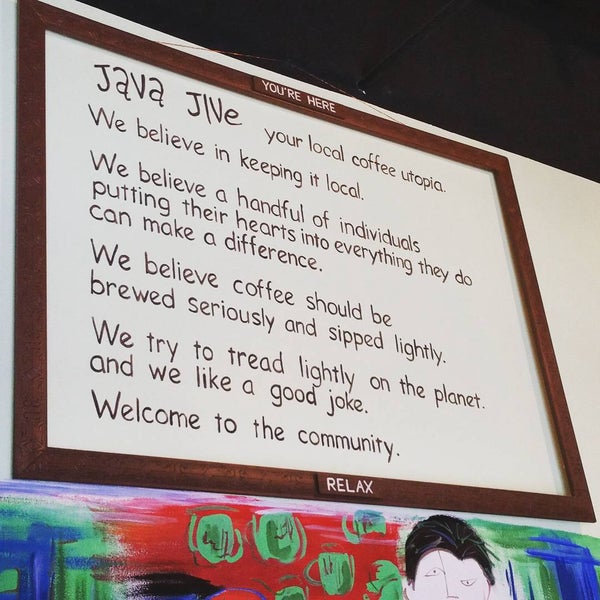 YOU'RE HERE
Java Jive your local coffee utopia.
We believe in keeping it local.
We believe a handful of individuals
putting their hearts into everything they do
can make a difference.
We believe coffee should be
brewed seriously and sipped lightly.
We try to tread lightly on the planet.
and we like a good joke.
Welcome to the community.
RELAX